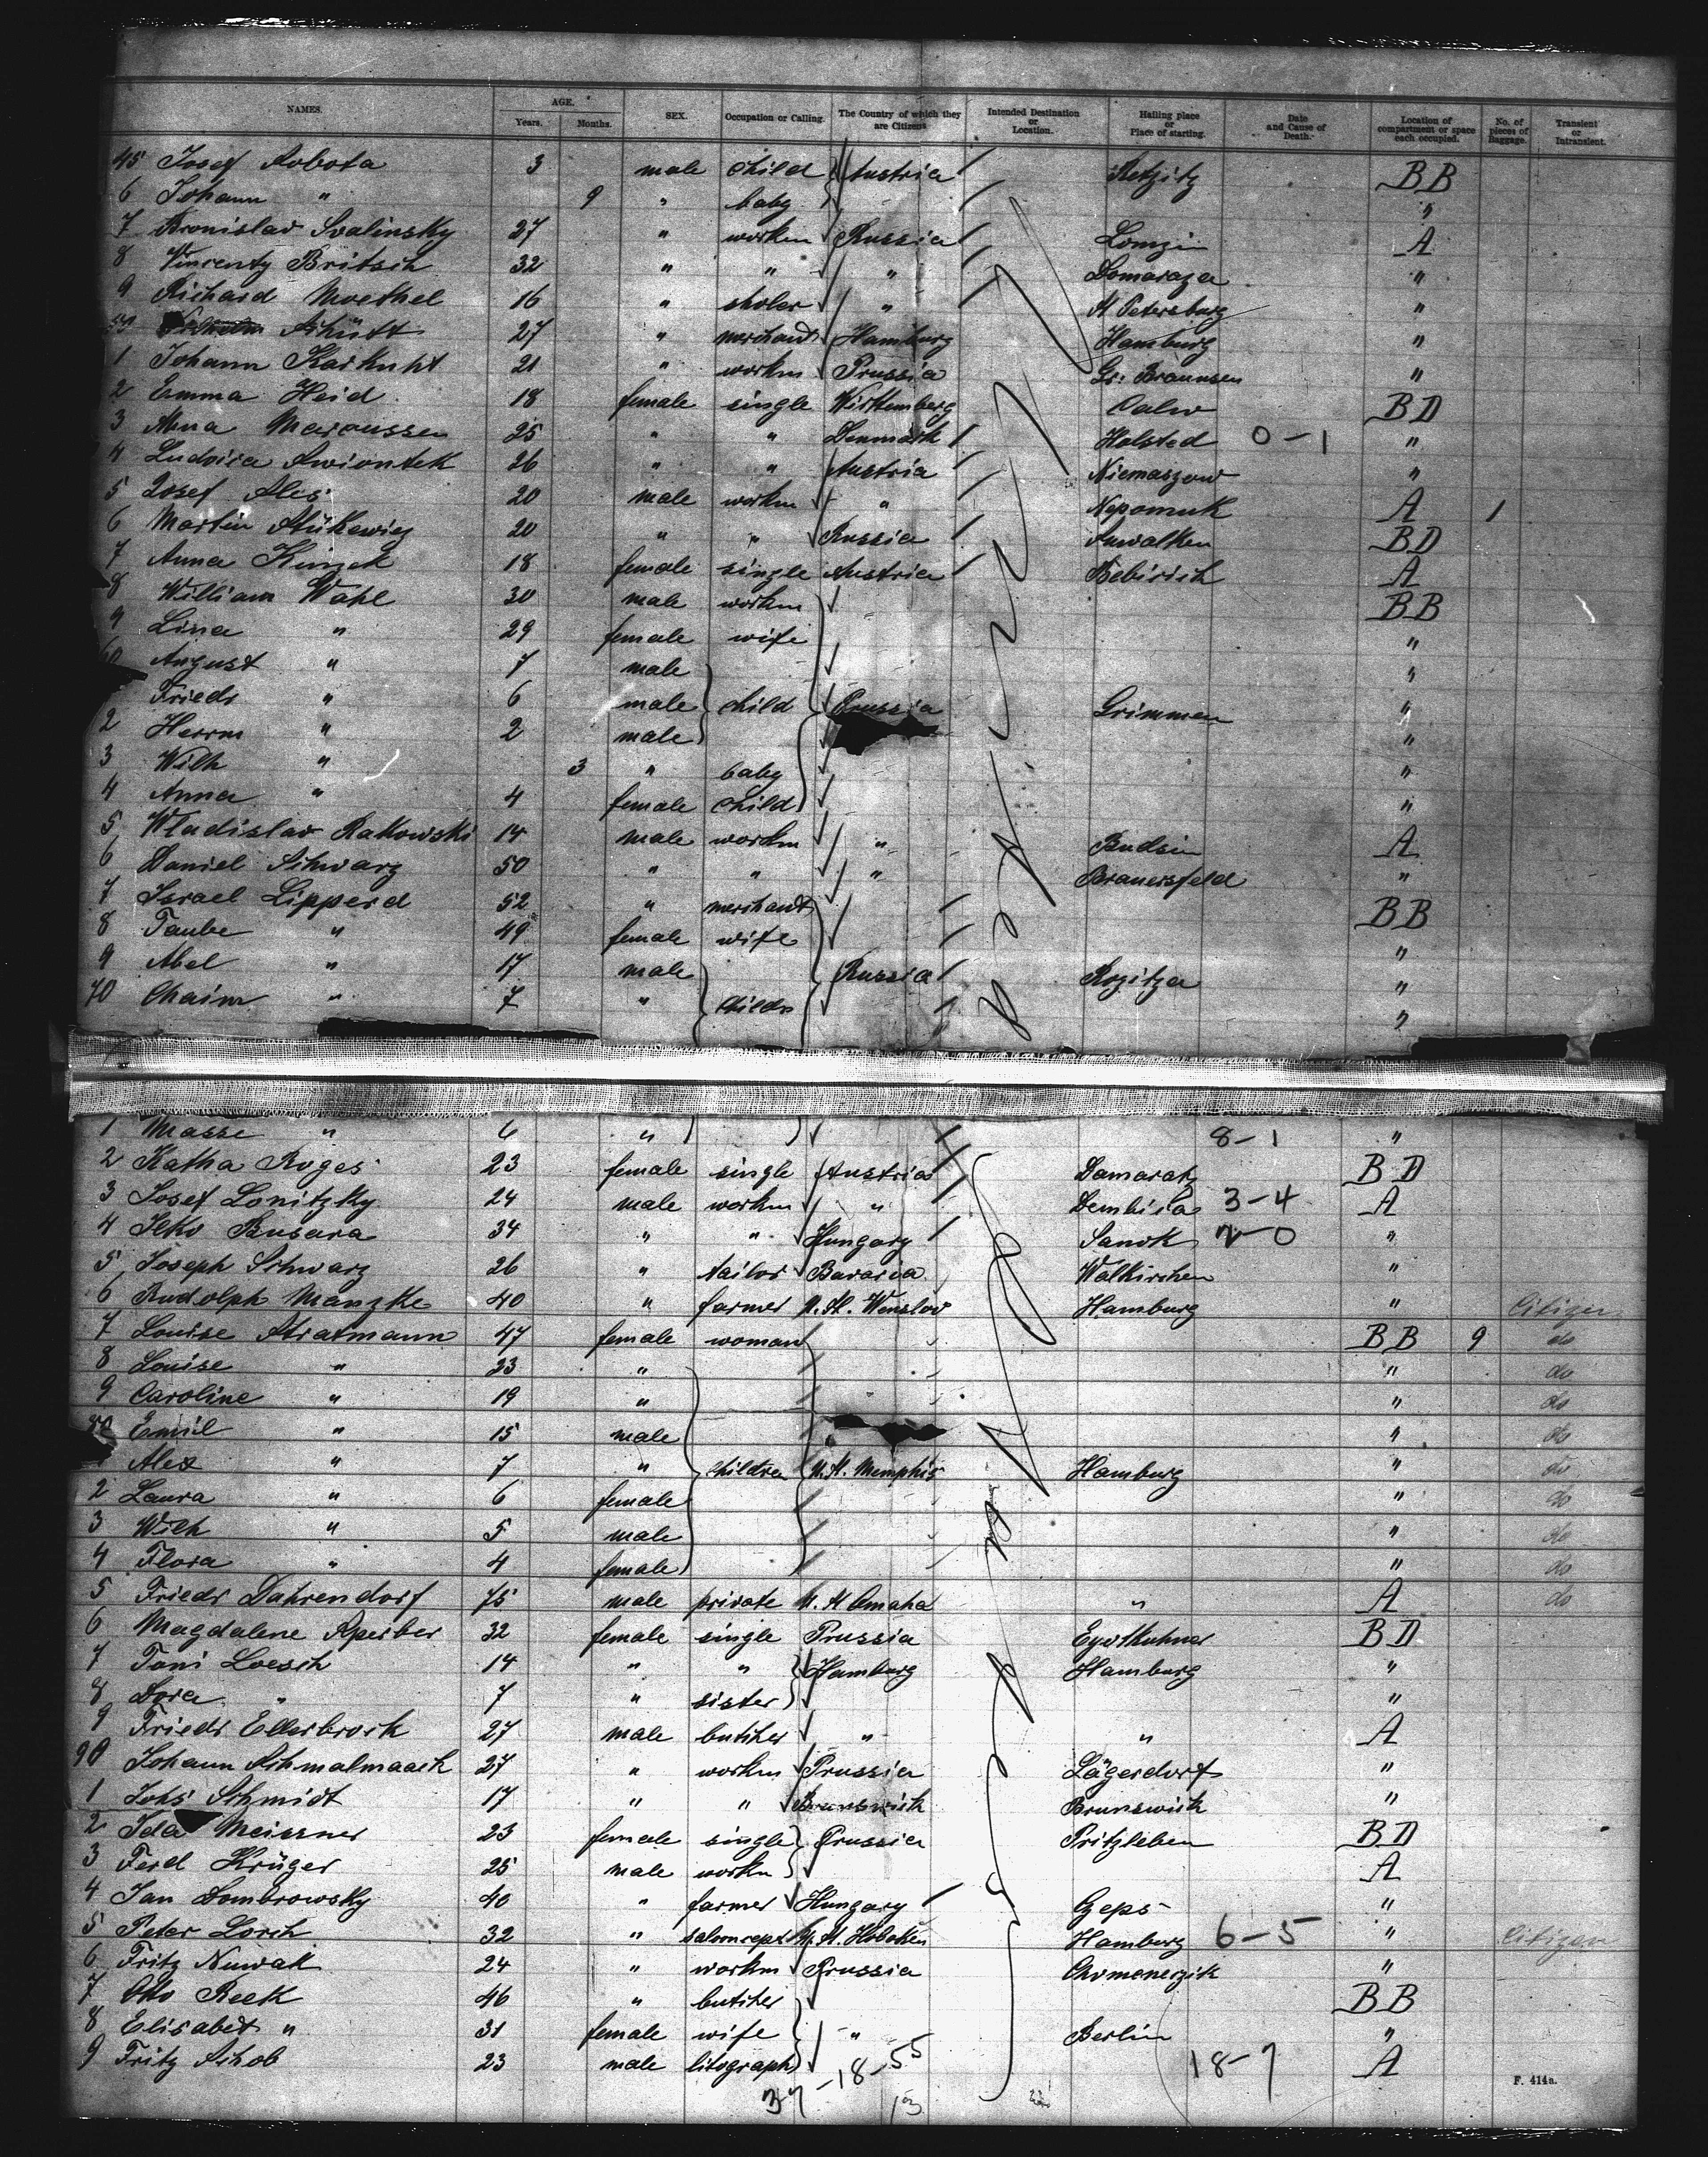 NAMES. AGE. Years. Months. SEX. Occupation or Calling. The Country of which they are Citizens Intended Destination or Location. Hailing place or Place of starting. Date and Cause of Death. Location of compartment or space each occupied. No. of pieces of Baggage. Transient or Intransient.
45 Josef Sobota 3 male child Austria BB
6 Johann " 9 " baby "
7 Bronislav Svalinsky 27 " workm Russia Lomzin A
8 Vincenty Britsch 32 " " " Domaraza "
9 Richard Moethel 16 " sholer " St Petersburg "
50 Schütt 27 " merchant Hamburg Hamburg "
1 Johann Karknht 21 " workm Prussia Gr: Braunsen "
2 Emma Heid 18 female single Württemberg Calw BD
3 Anna Marcussen 25 " " Denmark Halsted 0-1 "
4 Ludvica Swiontek 26 " " Austria Niemaszow "
5 Josef Ales 20 male workm " Nepomuk A 1
6 Martin Stukewicz 20 " " Russia Suwalken BD
7 Anna Kuczek 18 female single Austria A
8 William Wahl 30 male workm BB
9 Lina " 29 female wife "
60 August " 7 male "
Friedr " 6 male child Prussia Grimmen "
2 Herrm " 2 male "
3 Wilh " 3 " baby "
4 Anna " 4 female child "
5 Wladislav Rakowski 14 male workm " Budsin A
6 Daniel Schwarz 50 " " " Brauersfeld "
7 Israel Lipperd 52 " merchant BB
8 Taube " 49 female wife "
9 Abel " 17 male Russia Rozitza "
70 Chaim " 7 " childn "
1 Masse " 6 " 8-1 "
2 Katha Roges 23 female single Austria Damaratz BD
3 Josef Lonitzky 24 male workm " Dembica 3-4 A
4 Ilko Busara 34 " " Hungary Sanok 2-0 "
5 Joseph Schwarz 26 " tailor Bavaria Walkirchen "
6 Rudolph Manzke 40 " farmer U.St. Winslow Hamburg " Citizen
7 Louise Stratmann 47 female woman BB 9 do
8 Louise " 23 " " do
9 Caroline " 19 " " do
80 Emil " 15 male " do
1 Alex " 7 " children U.St. Memphis Hamburg " do
2 Laura " 6 female " do
3 Wilh " 5 male " do
4 Flora " 4 female " do
5 Friedr Dahrendorf 75 male private U.St Omaha " A do
6 Magdalene Sperber 32 female single Prussia Eydtkuhner BD
7 Toni Loesch 14 " " Hamburg Hamburg "
8 Dora " 7 " sister "
9 Friedr Ellerbrock 27 male butcher " " A
90 Johann Schmalmaack 27 " workm Prussia Lägerdorf "
1 Johs Schmidt 17 " " Brunswick Brunswick "
2 Ida Meissner 23 female single Prussia Pritzleben BD
3 Ferd Krüger 25 male workm A
4 Jan Dombrowsky 40 " farmer Hungary Czeps "
5 Peter Lorch 32 " U.St. Hoboken Hamburg 6-5 " Citizen
6 Fritz Nuwak 24 " workm Prussia "
7 Otto Reek 46 " butcher BB
8 Elisabet " 31 female wife " Berlin "
9 Fritz Schob 23 male litograph 18-7 A
37-18-55
13
F. 414a.